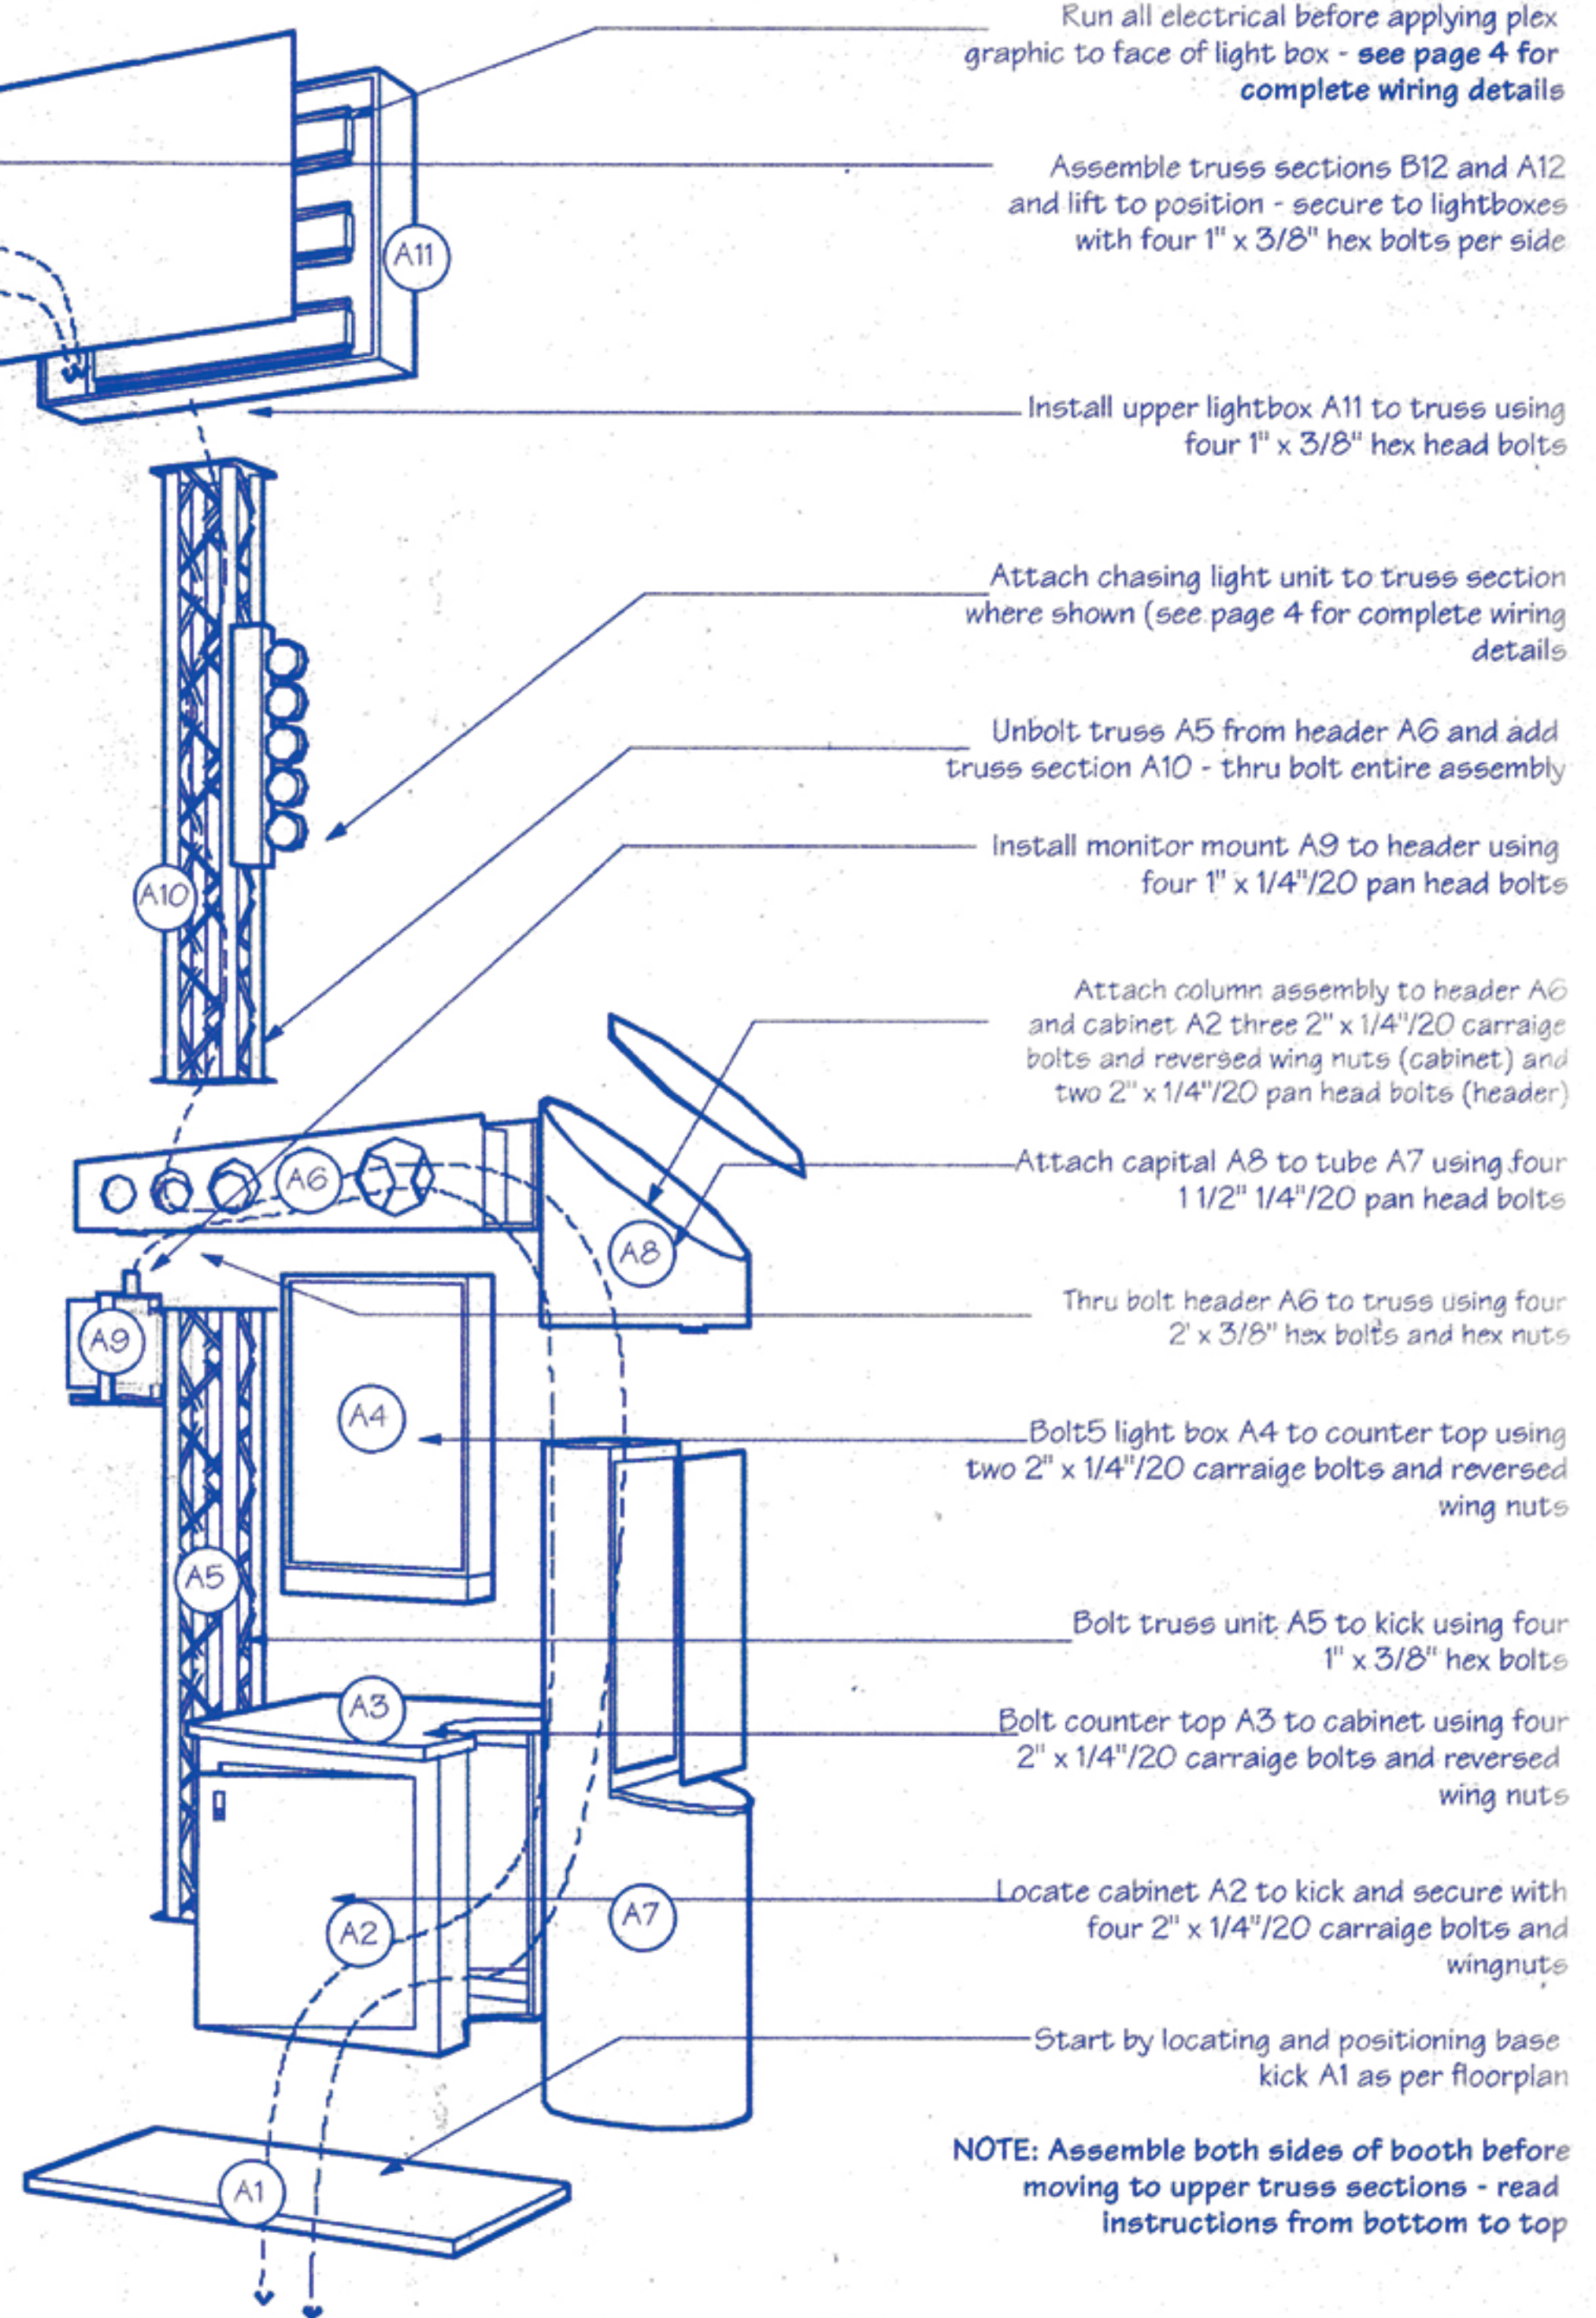 Run all electrical before applying plex
graphic to face of light box - see page 4 for
complete wiring details
Assemble truss sections B12 and A12
and lift to position - secure to lightboxes
with four 1" x 3/8" hex bolts per side
A11
Install upper lightbox A11 to truss using
four 1" x 3/8" hex head bolts
Attach chasing light unit to truss section
where shown (see page 4 for complete wiring
details
Unbolt truss A5 from header A6 and add
truss section A10 - thru bolt entire assembly
Install monitor mount A9 to header using
four 1" x 1/4"/20 pan head bolts
A10
Attach column assembly to header A6
and cabinet A2 three 2" x 1/4"/20 carraige
bolts and reversed wing nuts (cabinet) and
two 2" x 1/4"/20 pan head bolts (header)
Attach capital A8 to tube A7 using four
1 1/2" 1/4"/20 pan head bolts
A6
A8
Thru bolt header A6 to truss using four
2' x 3/8" hex bolts and hex nuts
A9
A4
Bolt5 light box A4 to counter top using
two 2" x 1/4"/20 carraige bolts and reversed
wing nuts
A5
Bolt truss unit A5 to kick using four
1" x 3/8" hex bolts
A3
Bolt counter top A3 to cabinet using four
2" x 1/4"/20 carraige bolts and reversed
wing nuts
Locate cabinet A2 to kick and secure with
four 2" x 1/4"/20 carraige bolts and
wingnuts
A2
A7
Start by locating and positioning base
kick A1 as per floorplan
A1
NOTE: Assemble both sides of booth before
moving to upper truss sections - read
instructions from bottom to top